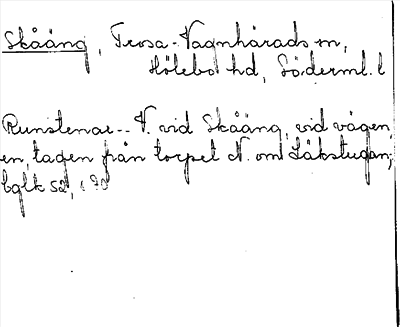 Skåäng, Trosa-Vagnhärads sn,
Hölebo hd, Söderml. l
Runstenar -- V. vid Skåäng, vid vägen,
en, tagen från torpet N. om Låkstugan;
bglk 52,